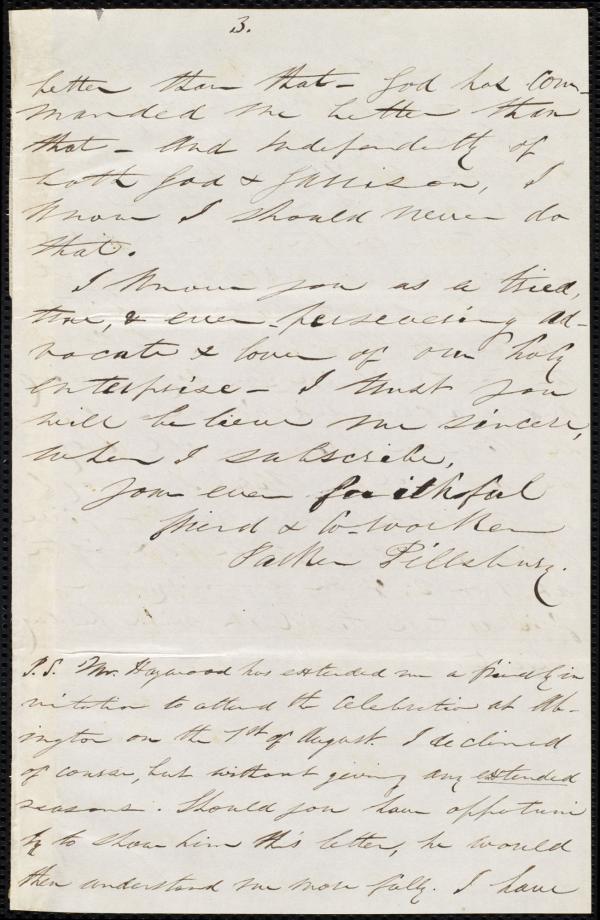 3.
better than that - God has com-
manded me better than
that - And independently of
both God & Garrison, I
know I should never do
that.
I know you as a tried,
true, & ever-persevering ad-
vocate & lover of our holy
enterprise - I trust you
will believe me sincere,
when I subscribe,
your ever faithful
friend & Co-worker
Parker Pillsbury.
P.S. Mr. Haywood has extended me a friendly in
vitation to attend the Celebration at Ab-
ington on the 1st of August. I declined
of course, but without giving any extended
reasons. Should you have opportuni
ty to show him this letter, he would
then understand me more fully. I have